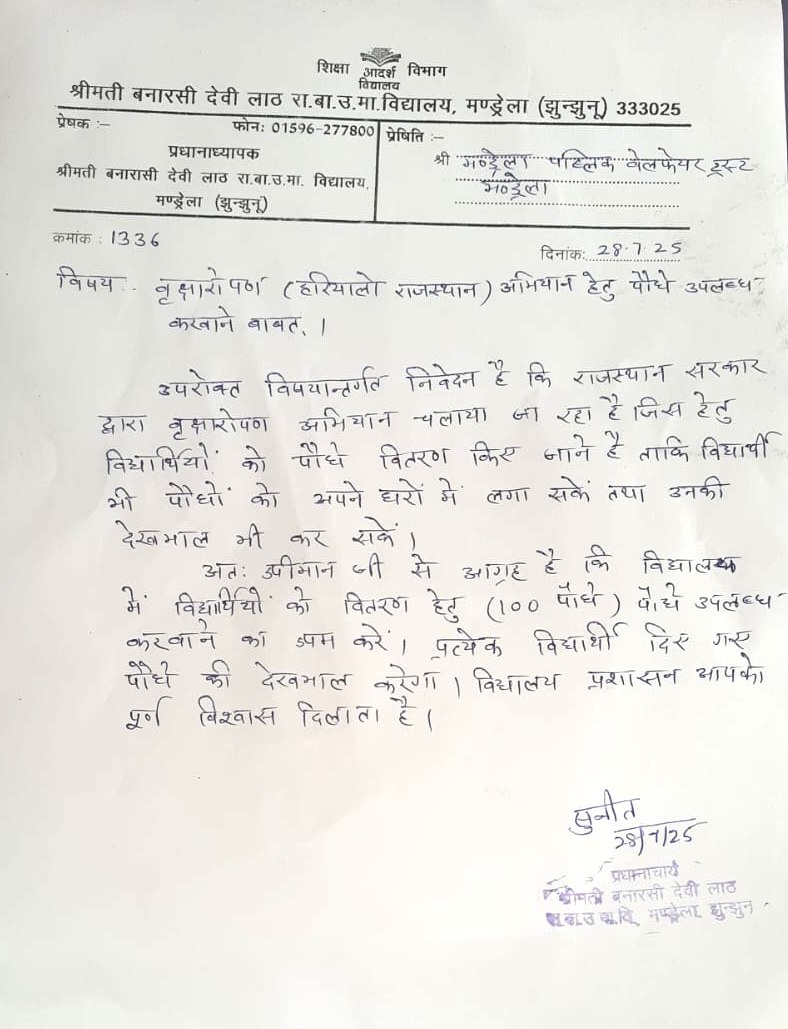 शिक्षा आदर्श विभाग
विद्यालय
श्रीमती बनारसी देवी लाठ रा.बा.उ.मा.विद्यालय, मण्ड्रेला (झुन्झुनू) 333025
प्रेषक :– फोन: 01596-277800
प्रधानाध्यापक
श्रीमती बनारासी देवी लाठ रा.बा.उ.मा. विद्यालय,
मण्ड्रेला (झुन्झुनू)
प्रेषिति :–
श्री मण्ड्रेला पब्लिक वेलफेयर ट्रस्ट
मण्ड्रेला
कमांक : 1336
दिनांक: 28.7.25
विषय :- वृक्षारोपण (हरियालो राजस्थान) अभियान हेतु पौधे उपलब्ध
करवाने बाबत् ।
उपरोक्त विषयान्तर्गत निवेदन है कि राजस्थान सरकार
द्वारा वृक्षारोपण अभियान चलाया जा रहा है जिस हेतु
विद्यार्थियों को पौधे वितरण किए जाने है ताकि विद्यार्थी
भी पौधों को अपने घरों में लगा सकें तथा उनकी
देखभाल भी कर सकें ।
अतः श्रीमान जी से आग्रह है कि विद्यालय
में विद्यार्थियों को वितरण हेतु (100 पौधे) पौधे उपलब्ध
करवाने का श्रम करें । प्रत्येक विद्यार्थी दिए गए
पौधे की देखभाल करेगा । विद्यालय प्रशासन आपको
पूर्ण विश्वास दिलाता है ।
सुनीत
28/7/25
प्रधानाचार्य
श्रीमती बनारसी देवी लाठ
रा.बा.उ.मा.वि. मण्ड्रेला, झुन्झुनू